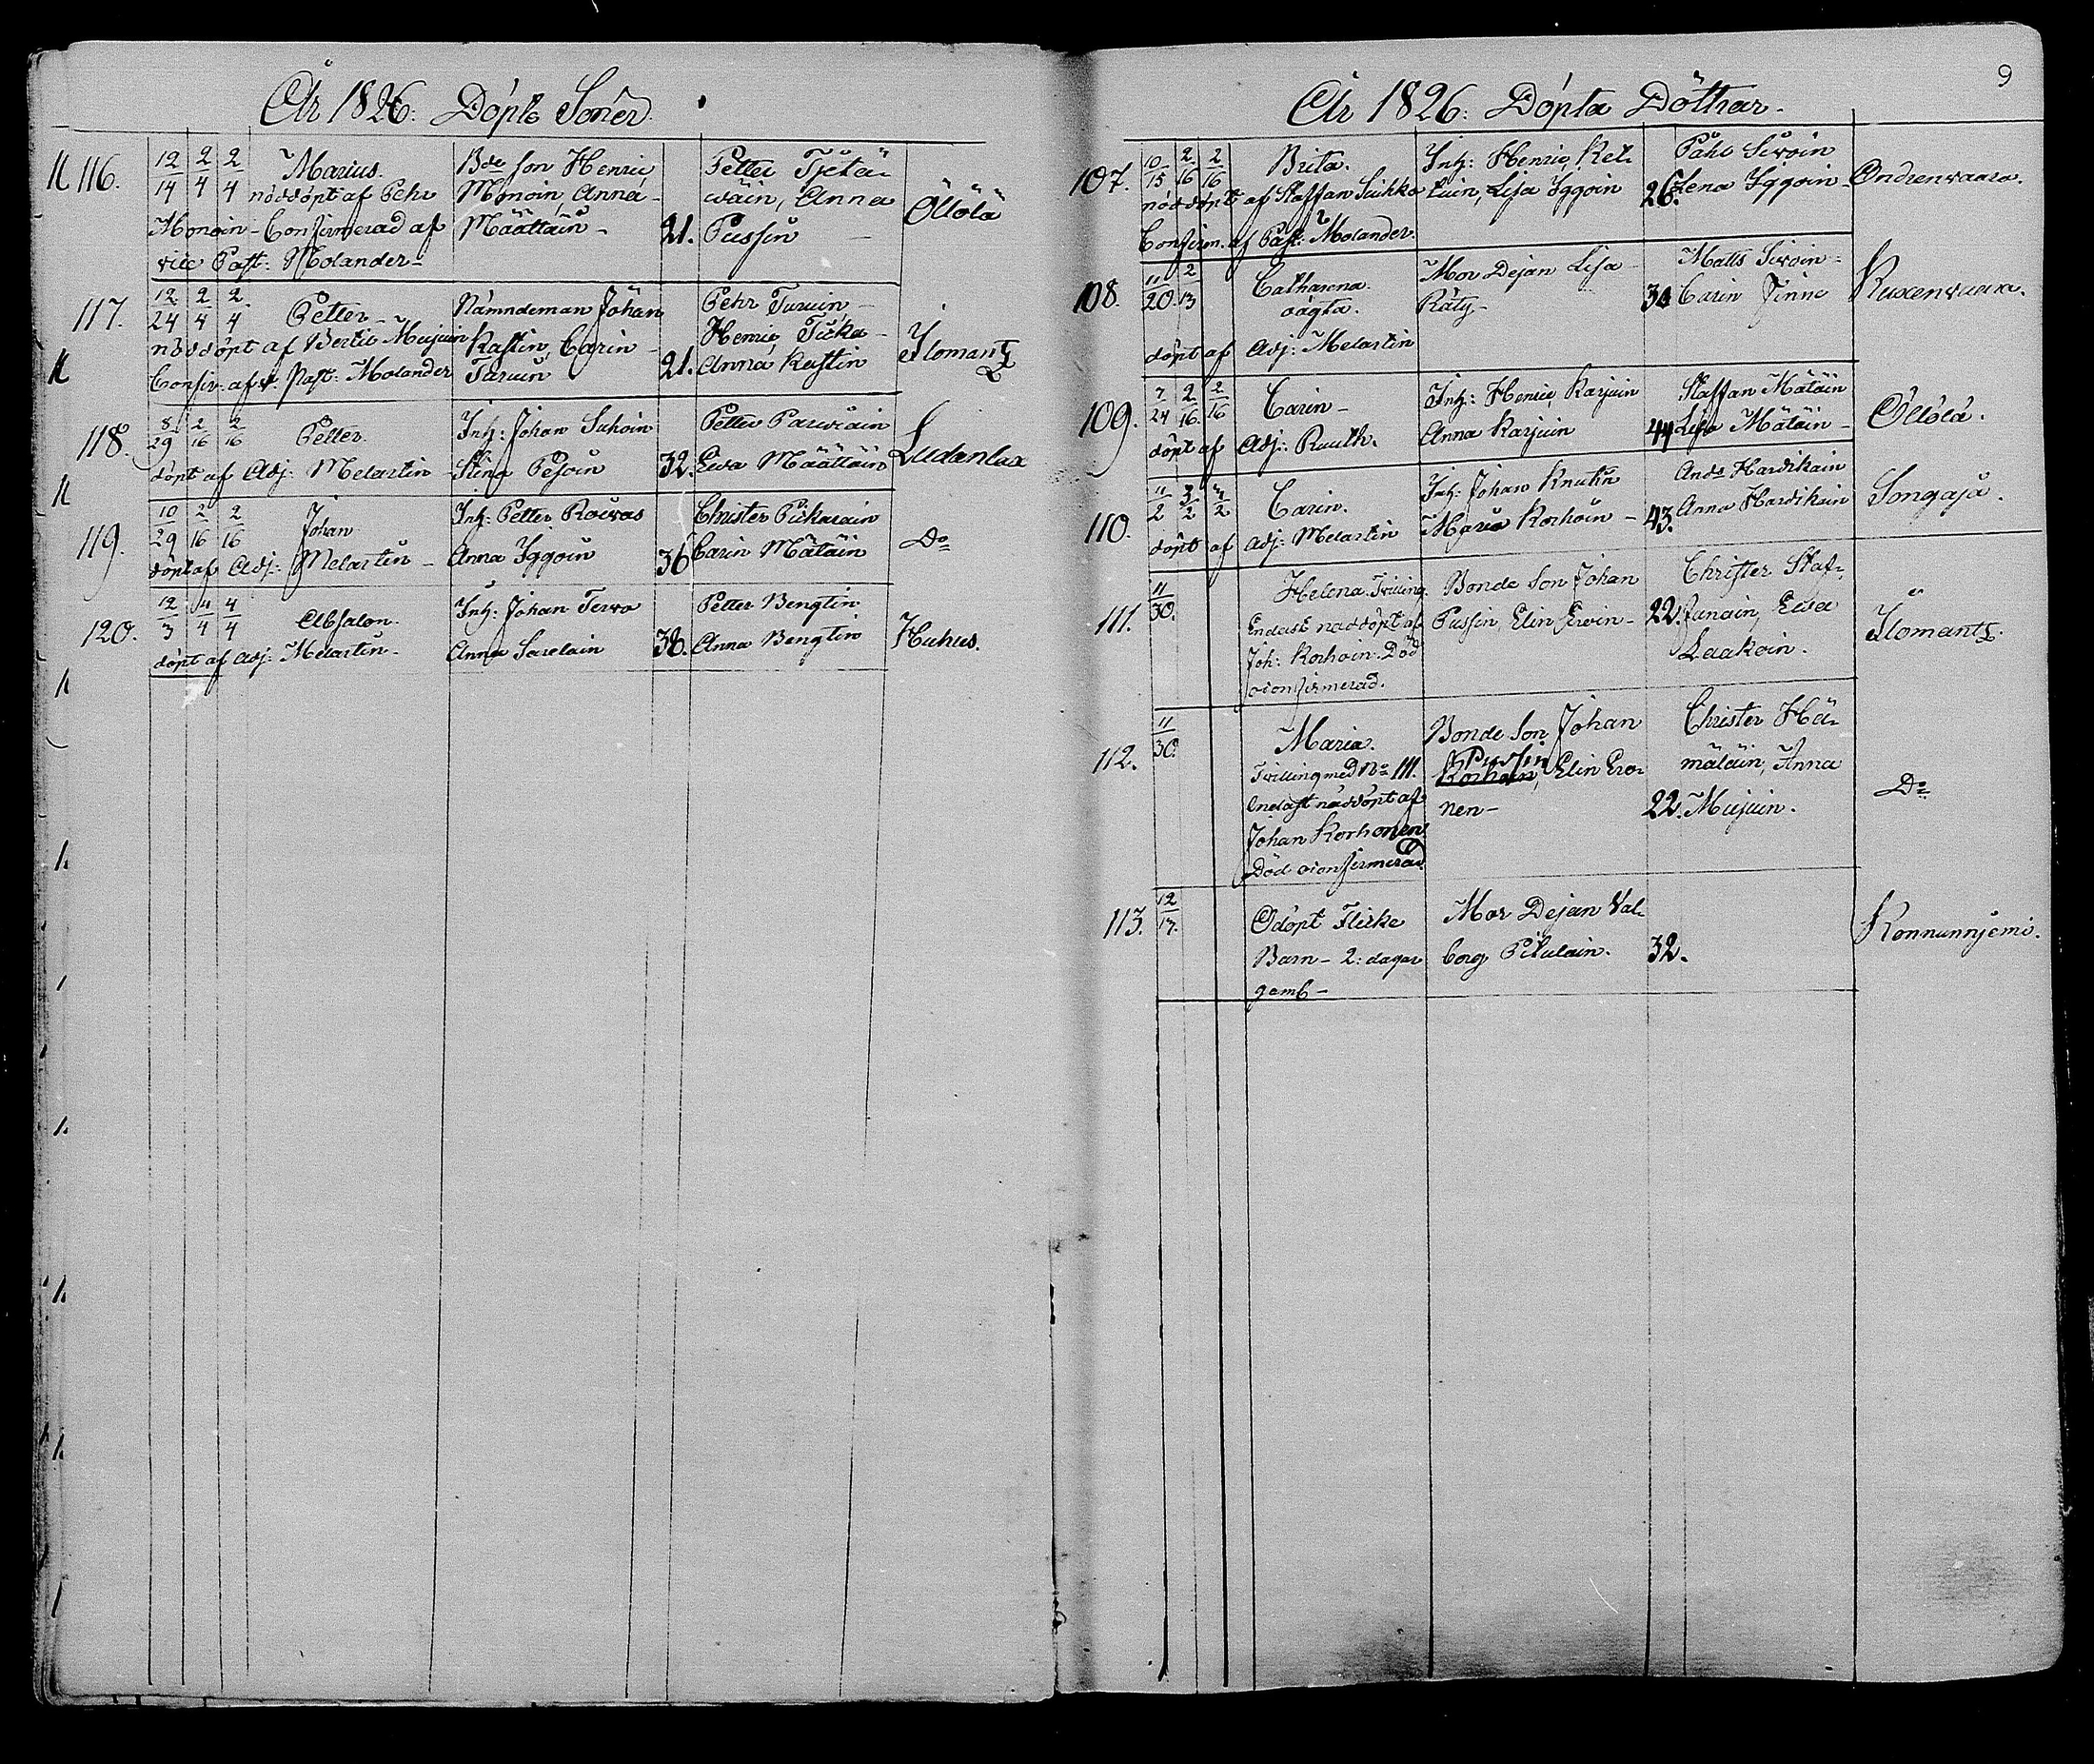 År 1826: Döpte Söner.
116. 12/14 2/4 2/4 Marius. Bde son Henric Petter Tjetä-
nöddöpt af Pehr Monoin, Anna wäin, Anna Öllölä
Monoin - Confirmerad af Määttäin - 21. Pussin -
vice Past: Molander -
117. 12/24 2/4 2/4 Petter - Nämndeman Johan Pehr Turuin
nöddöpt af Bertil Mujuin Kastin, Carin - Henric Ticka - Ilomantz
Confir. af v. Past: Molander Turuin 21. Anna Kastin
118. 8/29 2/16 2/16 Petter. Inh: Johan Suhoin Petter Parwiain Ludanlax
döpt af Adj: Melartin - Stina Pesoin 32. Ewa Määttäin
119. 10/29 2/16 2/16 Johan Inh: Petter Rouvas Christer Pickarain Do
döpt af Adj: Melartin - Anna Iggoin 36 Carin Mätäin
120. 12/3 4/4 4/4 Absalon. Inh: Johan Terwo Petter Bengtin Huhus.
döpt af Adj: Melartin - Anna Sarelain 38. Anna Bengtin
9
År 1826: Döpta Döttrar.
107. 10/15 2/16 2/16 Brita. Inh: Henric Kel- Påhl Siwoin
nöddöpt af Staffan Suihko tuin, Lisa Iggoin 26. Lena Iggoin - Ondrenvaara.
Confirm. af Past: Molander.
108. 11/20 2/13 Catharina. Mor Dejan Lisa - Matts Siwoin - Kuxenvaara.
oägta. Räty - 30 Carin Jinne
döpt af Adj: Melartin
109. 7/24 2/16 2/16 Carin - Inh: Henric Karjuin Staffan Mätäin Öllölä.
döpt af Adj: Rauth. Anna Karjuin 44 Lisa Mätäin -
110. 11/2 3/2 4/2 Carin. Inh: Johan Knutin Ands Hardikain Songaja.
döpt af Adj: Melartin Maria Korhoin - 43. Anna Hardikain
111. 11/30. Helena. Trilling. Bonde Son Johan Christer Staf-
Endast nöddöpt af Pussin, Elin Eroin - 22. funain, Elisa Ilomantz.
Joh: Korhoin. Död Laakoin.
oconfirmerad.
112. 11/30. Maria. Bonde Son Johan Christer Hä-
Trilling med No 111. Pussin
Korhoin, Elin Ero- mäläin, Anna Do
Endast nöddöpt af nen - 22. Mujuin.
Johan Korhonen
Död oconfirmerad.
113. 12/17. Odöpt Flicke Mor Dejan Val-
Barn - 2: dagar borg Pitulain. 32. Konnunnjemi.
gamt -